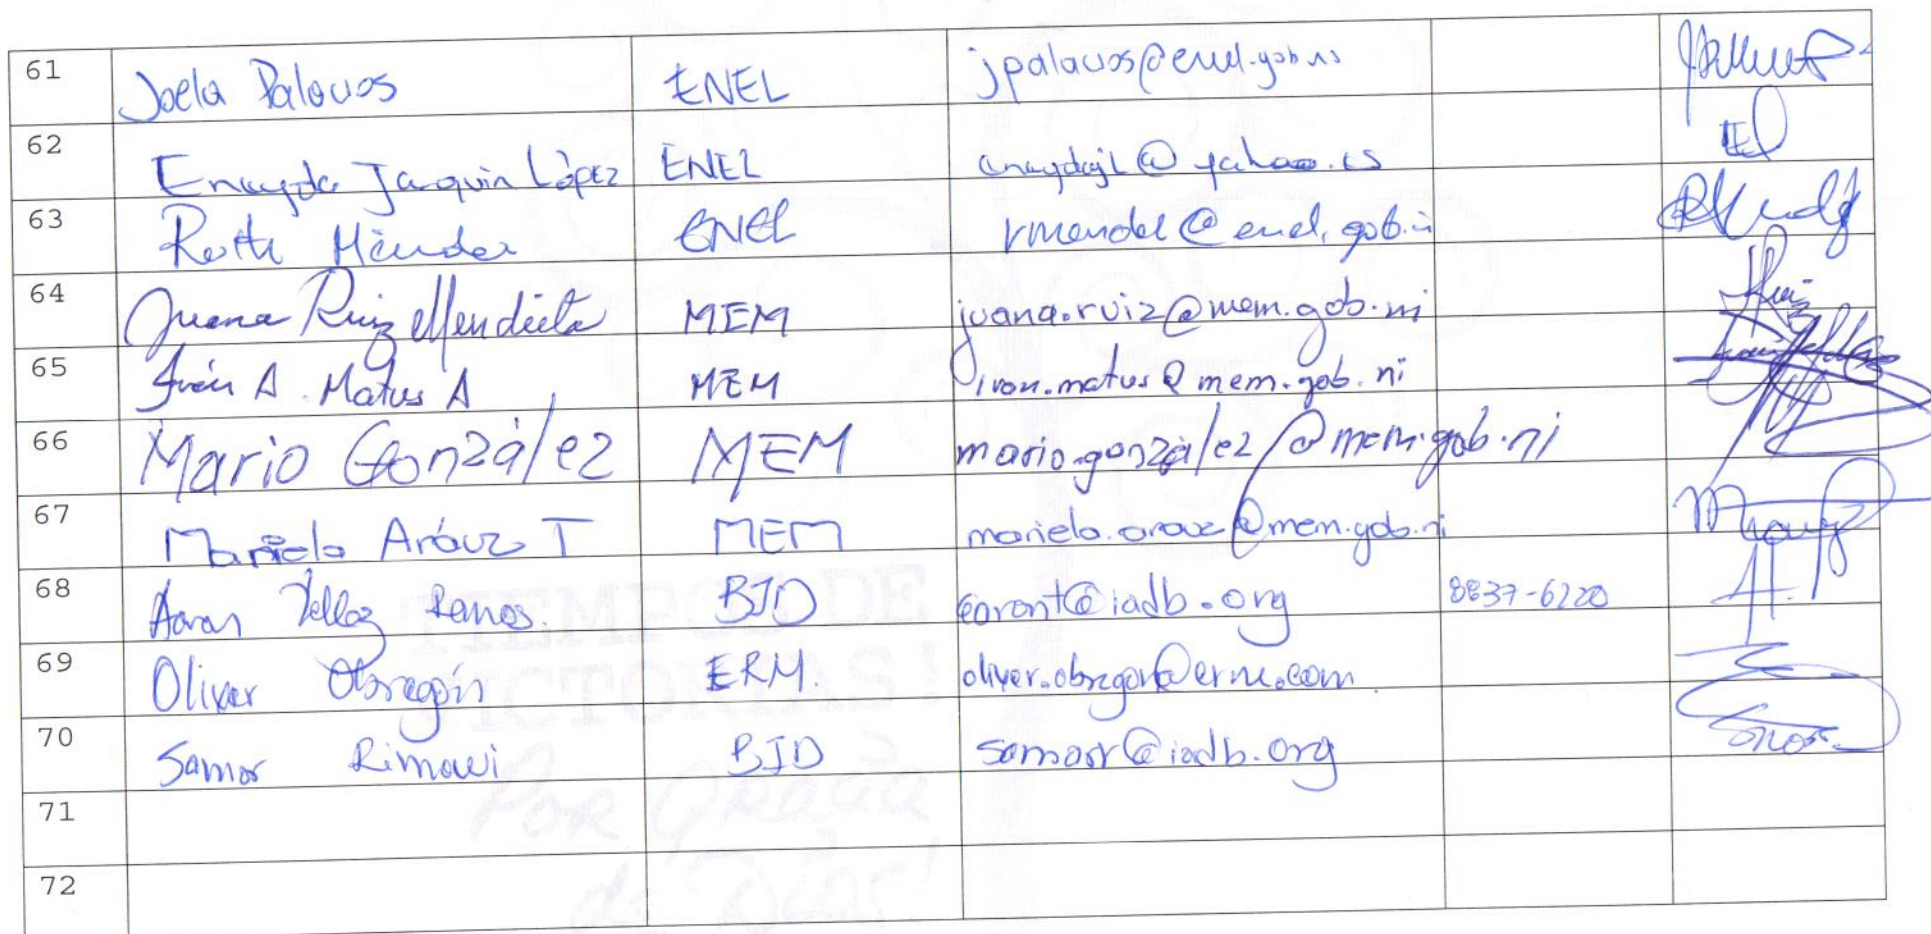 61 Joela Palacios ENEL jpalacios@enel.gob.ni
62 Enayda Jarquin López ENEL enaydajl@yahoo.es
63 Ruth Méndez ENEL rmendez@enel.gob.ni
64 Juana Ruiz Mendieta MEM juana.ruiz@mem.gob.ni
65 Iván A. Matus A MEM ivan.matus@mem.gob.ni
66 Mario González MEM mario.gonzález@mem.gob.ni
67 Mariela Aráuz T MEM mariela.arauz@mem.gob.ni
68 Aaran Tellez Ramos. BID aarant@iadb.org 8837-6200
69 Oliver Obregón ERM. oliver.obregon@erm.com
70 Samar Rimawi BID samarr@iadb.org
71
72
TIEMPOS DE
VICTORIAS!
Por Gracia
de Dios!